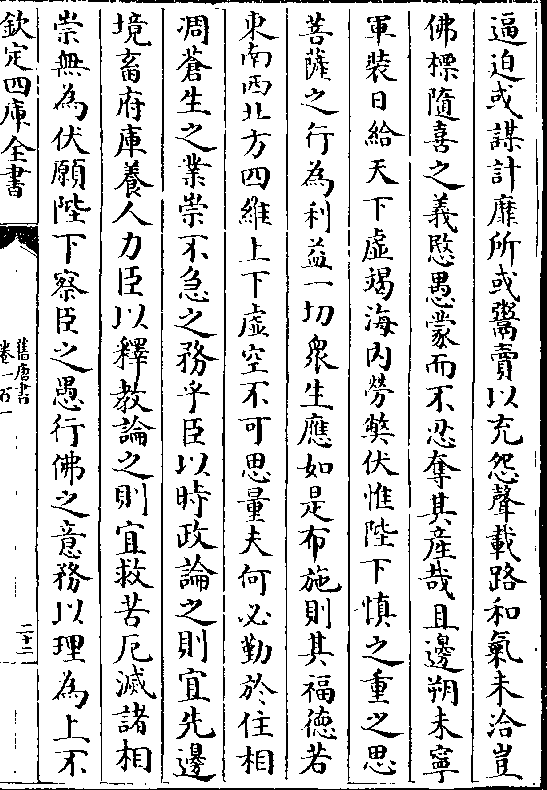 逼迫或謀計靡所或鬻賣以充怨聲載路和氣未洽豈
佛標隨喜之義愍愚蒙而不忍奪其產哉且邊朔未寧
軍裝日給天下虛竭海内勞弊伏惟陛下慎之重之思
菩薩之行為利益一切衆生應如是布施則其福德若
東南西北方四維上下虛空不可思量夫何必勤於住相
凋蒼生之業崇不急之務乎臣以時政論之則宜先邊
境畜府庫養人力臣以釋教論之則宜救苦厄滅諸相
崇無為伏願陛下察臣之愚行佛之意務以理為上不
欽定四庫全書
舊唐書
卷一百一
二十二